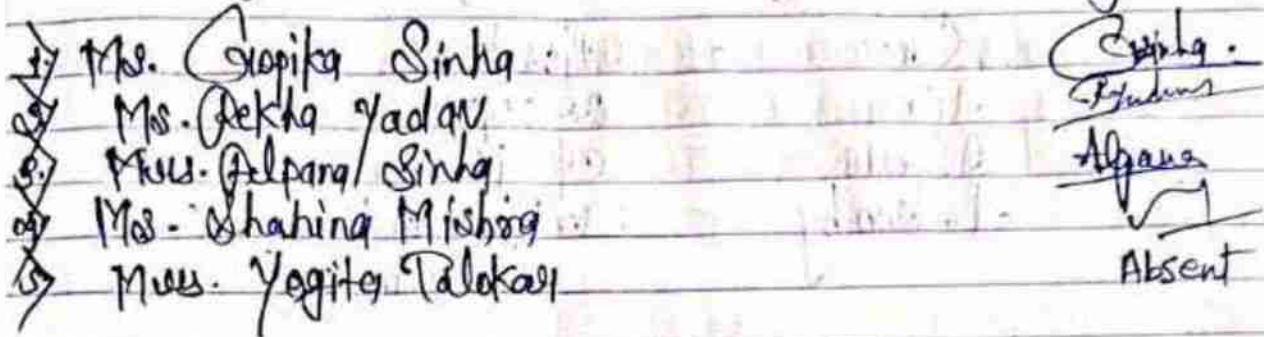 1) Ms. Gopika Sinha :
2) Ms. Rekha Yadav
3) Mrs. Alpana Sinha Alpana
04) Ms. Shahina Mishra
5) Mrs. Yogita Talokar Absent